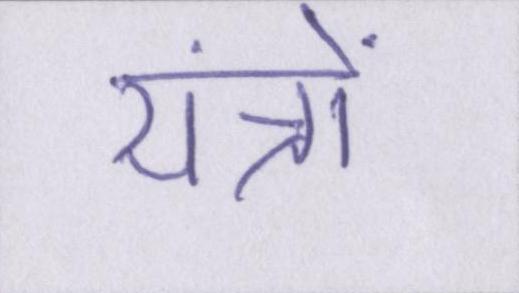 यंत्रों